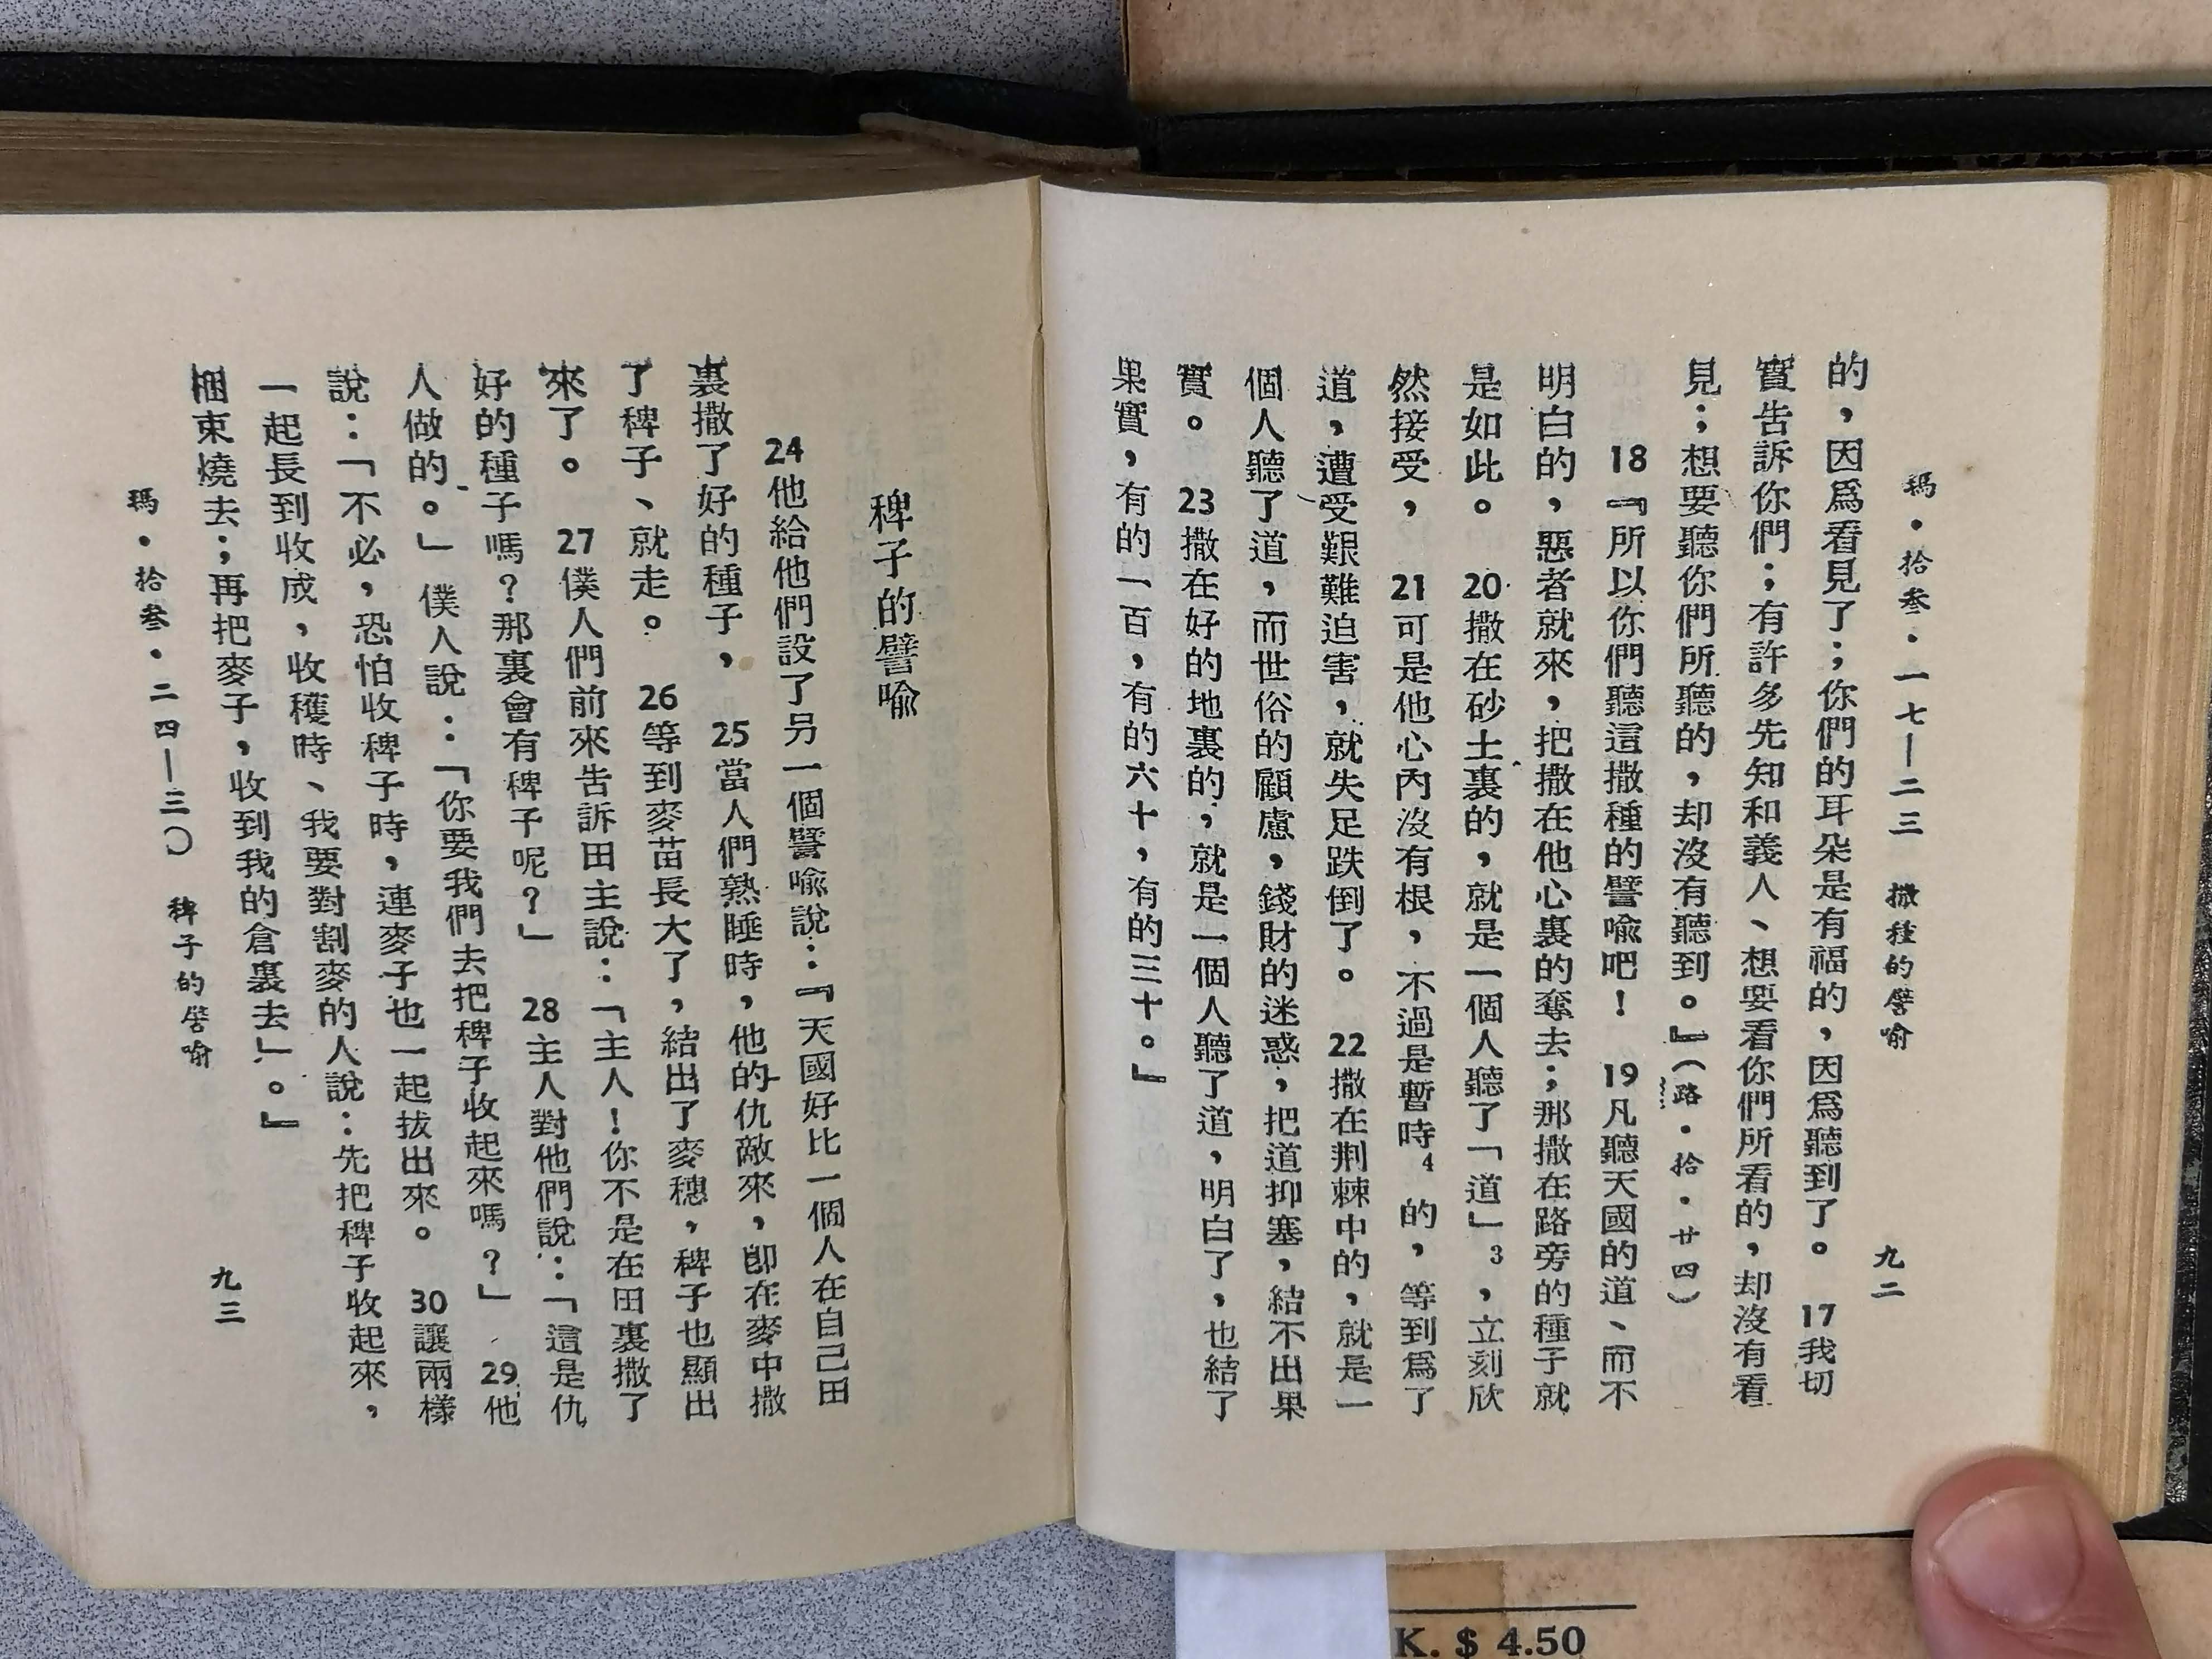 瑪・拾叁・一七—二三　撒種的譬喻　九二
的，因爲看見了；你們的耳朵是有福的，因爲聽到了。　17我切
實告訴你們；有許多先知和義人、想要看你們所看的，却沒有看
見；想要聽你們所聽的，却沒有聽到。』（路・拾・廿四）
18『所以你們聽這撒種的譬喻吧！　19凡聽天國的道、而不
明白的，惡者就來，把撒在他心裏的奪去；那撒在路旁的種子就
是如此。　20撒在砂土裏的，就是一個人聽了「道」3，立刻欣
然接受，　21可是他心內沒有根，不過是暫時4 的，等到爲了
道，遭受艱難迫害，就失足跌倒了。　22撒在荆棘中的，就是一
個人聽了道，而世俗的顧慮，錢財的迷惑，把道抑塞，結不出果
實。　23撒在好的地裏的，就是一個人聽了道，明白了，也結了
果實，有的一百，有的六十，有的三十。』
稗子的譬喻
24他給他們設了另一個譬喻說：『天國好比一個人在自己田
裏撒了好的種子，　25當人們熟睡時，他的仇敵來，卽在麥中撒
了稗子、就走。　26等到麥苗長大了，結出了麥穗，稗子也顯出
來了。　27僕人們前來告訴田主說：「主人！你不是在田裏撒了
好的種子嗎？那裏會有稗子呢？」　28主人對他們說：「這是仇
人做的。」僕人說：「你要我們去把稗子收起來嗎？」　29他
說：「不必，恐怕收稗子時，連麥子也一起拔出來。　30讓兩樣
一起長到收成，收穫時、我要對割麥的人說：先把稗子收起來，
梱束燒去；再把麥子，收到我的倉裏去」。』
瑪・拾叁・二四—三〇　稗子的譬喻　九三
K. $ 4.50